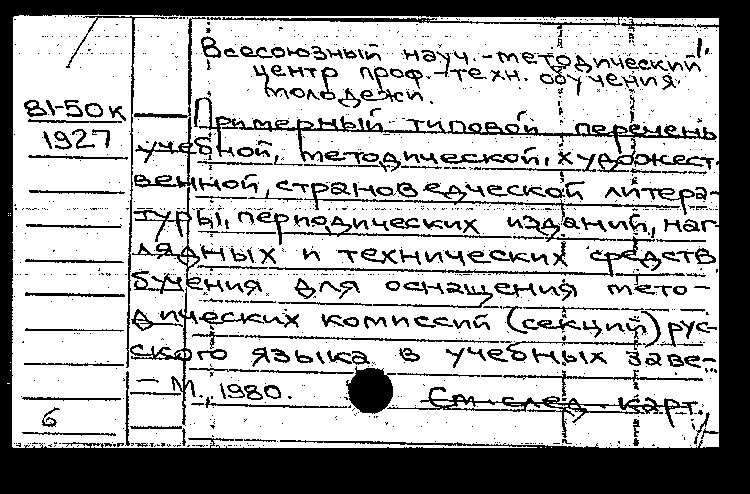 1.
Всесоюзный науч.-методический
центр проф.-техн. обучения
молодежи.
81-50к
1927
Примерный типовой перечень
учебной, методической, художест-
венной, страноведческой литера-
туры, периодических изданий, наг-
лядных и технических средств
бучения для оснащения мето-
дических комиссий (секций) рус-
ского языка в учебных заве-
- М., 1980.
См. след. карт.
6